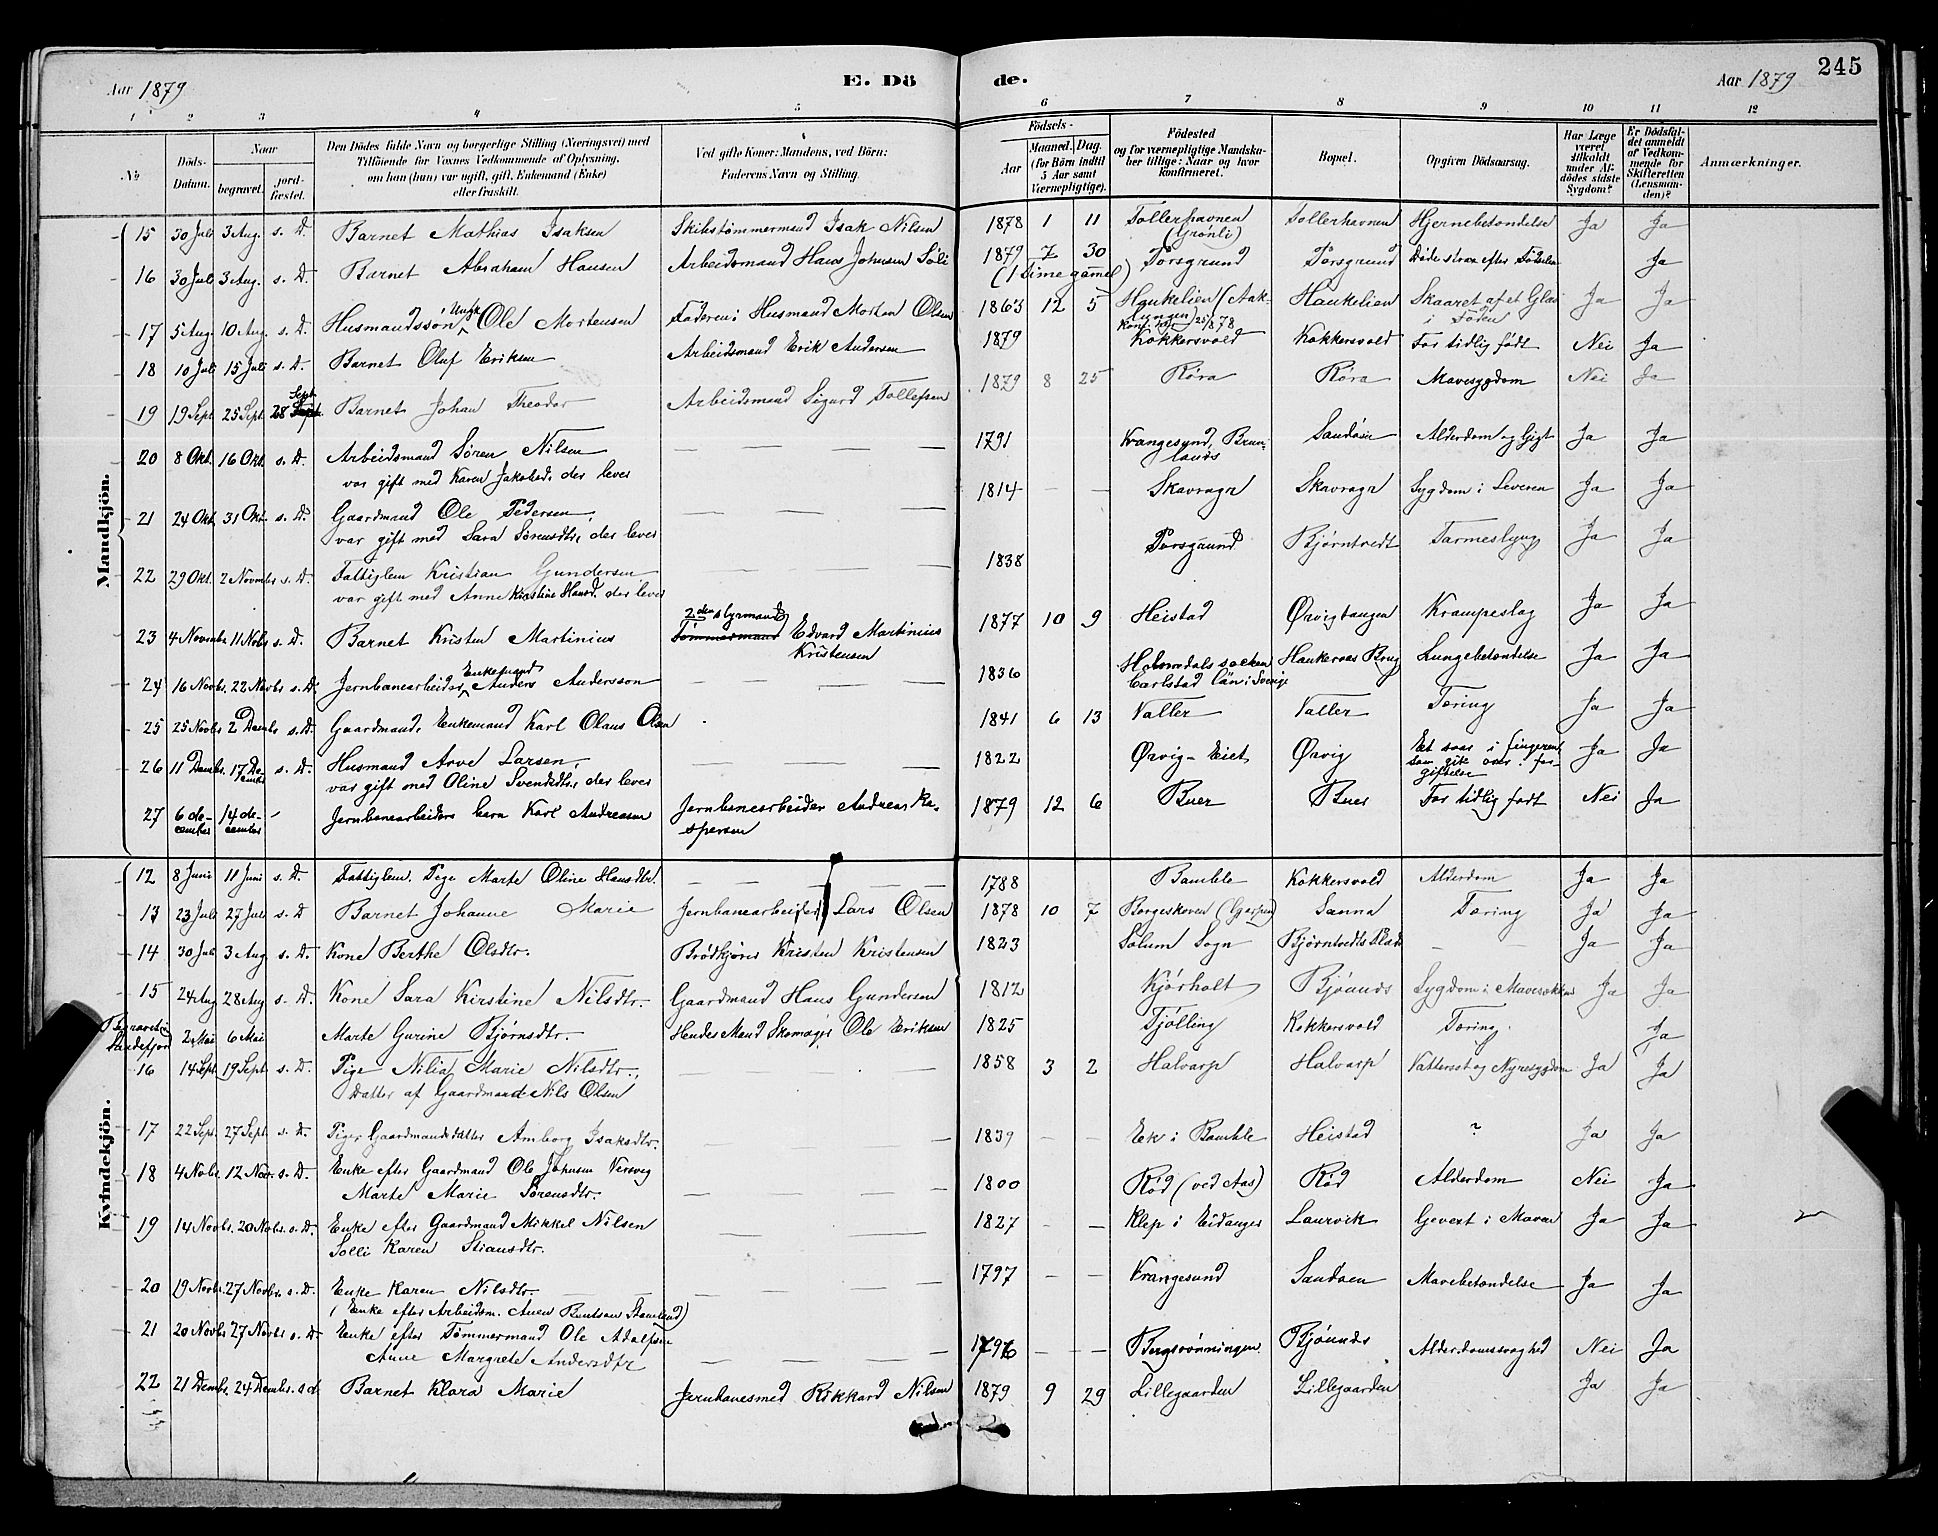 245
Aar 1879 E. Dö
de. Aar 1879
1 2 3 4 5
6 7 8 9 10 11 12
No
Döds-Datum.
Naar
begravet.
jord-fæstet.
Den Dödes fulde Navn og borgerlige Stilling (Næringsvei) med
Tilföiende for Voxnes Vedkommende af Oplysning,
om han (hun) var ugift, gift, Enkemand (Enke)
eller fraskilt.
Ved gifte Koner: Mandens, ved Börn:
Faderens Navn og Stilling.
Födsels-
Aar
Maaned. Dag.
(for Börn indtil
5 Aar samt
Værnepligtige).
Födested
og for værnepligtige Mandska-
ber tillige: Naar og hvor
konfirmeret.
Bopæl.
Opgiven Dödsaarsag.
Har Læge
været
tilkaldt
under Af-
dödes sidste
Sygdom?
Er Dödsfal-
det anmeldt
af Vedkom-
mende for
Skifteretten
(Lensman-
den)?
Anmærkninger.
Mandkjön.
15 30 Juli 3 Aug. s. D. Barnet Mathias Isaksen Skibstømmermand Isak Nilsen 1878 1 11 Tollerhavnen (Grønli) Tollerhavnen Hjernebetændelse Ja Ja
16 30 Juli 3 Aug. s. D. Barnet Abraham Hansen Arbeidsmand Hans Johnsen Søli 1879 7 30 (1 Time gammel) Porsgrund Porsgrund Døde strax efter Fødselen Ja
17 5 Aug. 10 Aug. s. D. Husmandssøn Ungk. Ole Mortensen Faderen: Husmand Morten Olsen 1863 12 5 Haukelien (Aaklungen) Konf. 25/8 78 Haukelien Skaaret af et Glas i Foden Ja Ja
18 10 Juli 15 Juli s. D. Barnet Oluf Eriksen Arbeidsmand Erik Andersen 1879 Kokkersvold Kokkersvold For tidlig født Nei Ja
19 19 Sept. 25 Sept. 28 Sept. Barnet Johan Theodor Arbeidsmand Sigurd Tollefsen 1879 8 25 Røra Røra Mavesygdom Nei Ja
20 8 Okt. 16 Okt. s. D. Arbeidsmand Søren Nilsen 1791 Krangesund, Brunlanæs Sandøen Alderdom og Gigt Ja Ja
var gift med Karen Jakobsd. der lever
21 24 Okt. 31 Okt. s. D. Gaardmand Ole Pedersen, 1814 Skavragr Skavragr Sygdom i Leveren Ja Ja
var gift med Sara Sørensdtr. der lever
22 29 Okt. 2 Novmbr s. D. Fattiglem Kristian Gundersen 1838 Porsgrund Bjørntvedt Tarmeslyng Ja Ja
var gift med Anne Kirstine Hansd. der lever
23 4 Novembr 11 Novbr s. D. Barnet Kristen Martinius 2den Styrmand Tømmermand Edvard Martinius Kristensen 1877 10 9 Heistad Ørvigtangen Krampeslag Ja Ja
24 16 Novbr. 22 Novbr s. D. Jernbanearbeider Enkemand Anders Andersson 1836 Holmedals socken Carlstad län i Sverige Haukeraas Brug Lungebetændelse Ja Ja
25 25 Novbr 2 Dembr s. D. Gaardmand, Enkemand Karl Olaus Olsen 1841 6 13 Valler Valler Tæring Ja Ja
26 11 Dembr. 17 December s. D. Husmand Arve Larsen, 1822 Ørvig-Eiet Ørvig Et saar i fingeren som gik over i forgiftelse Ja Ja
var gift med Oline Svendsdtr. der lever
27 6 december 14 december Jernbanearbeiders barn Karl Andreasen Jernbanearbeider Andreas Kaspersen 1879 12 6 Buer Buer For tidlig født Nei Ja
Kvindekjön.
12 8 Juni 11 Juni s. D. Fattiglem. Pige Marte Oline Hansdtr. 1788 Bamble Kokkersvold Alderdom Ja Ja
13 23 Juli 27 Juli s. D Barnet Johanne Marie Jernbanearbeider Lars Olsen 1878 10 7 Borgeskoven (Gjerpen) Sanna Tæring Ja Ja
14 30 Juli 3 Aug s. D. Kone Berthe Olsdtr. Brødkjører Kristen Kristensen 1823 Solum Sogn Bjørntvedts Plads Ja Ja
15 24 Aug 28 Aug s. D. Kone Sara Kirstine Nilsdtr. Gaardmand Hans Gundersen 1812 Kjørholt Bjønnes Sygdom i Mavesækken Ja Ja
Begravet i Sandefjord 2 Mai 6 Mai Marte Gurine Bjørnsdtr. Hendes Mand Skomager Ole Eriksen 1825 Tjølling Kokkersvold Tæring Ja
16 14 Sept. 19 Sept. s. D. Pige Nilia Marie Nilsdtr., 1858 3 2 Halvarp Halvarp Vattersot og Nyresygdom Ja Ja
Datter af Gaardmand Nils Olsen
17 22 Sept. 27 Sept. s. D. Pige, Gaardmandsdatter Amborg Isaksdtr. 1839 Ek i Bamble Heistad ? Ja Ja
18 4 Novbr. 12 Nov. s. D. Enke efter Gaardmand Ole Johnsen Versvig 1800 Rød (ved Aas) Rød Alderdom Nei Ja
Marte Marie Sørensdtr.
19 14 Novbr. 20 Novbr. s. D. Enke efter Gaardmand Mikkel Nilsen 1827 Klep i Eidanger Laurvik Gevext i Maven Ja Ja
Solli Karen Stiansdtr.
20 19 Novbr. 27 Novbr. s. D. Enke Karen Nilsdtr. 1797 Krangesund Sandøen Mavebetændelse Ja Ja
(Enke efter Arbeidsm.
21 20 Novbr 27 Novbr s. D. Enke efter Tømmermand Ole Adolfsen 1796 Bergsrønningen Bjønnes Alderdomssvaghed Nei Ja
Anne Margrete Andersdtr
22 21 Dembr. 24 Dembr. s. d. Barnet Klara Marie Jernbanesmed Rikkard Nilsen 1879 9 29 Lillegaarden Lillegaarden Ja Ja